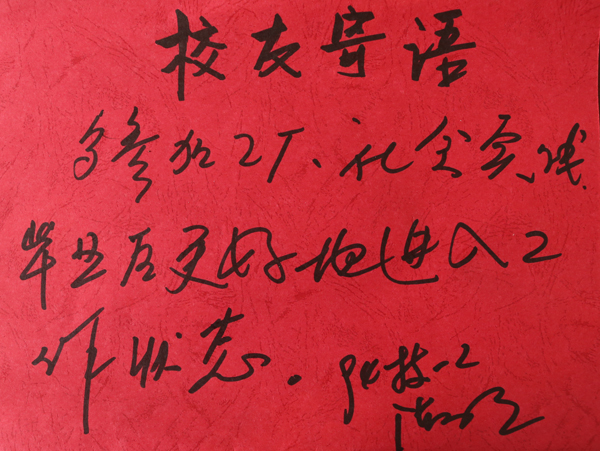 校友寄语
多参加工厂、社会实践,
毕业后更好地进入工
作状态。